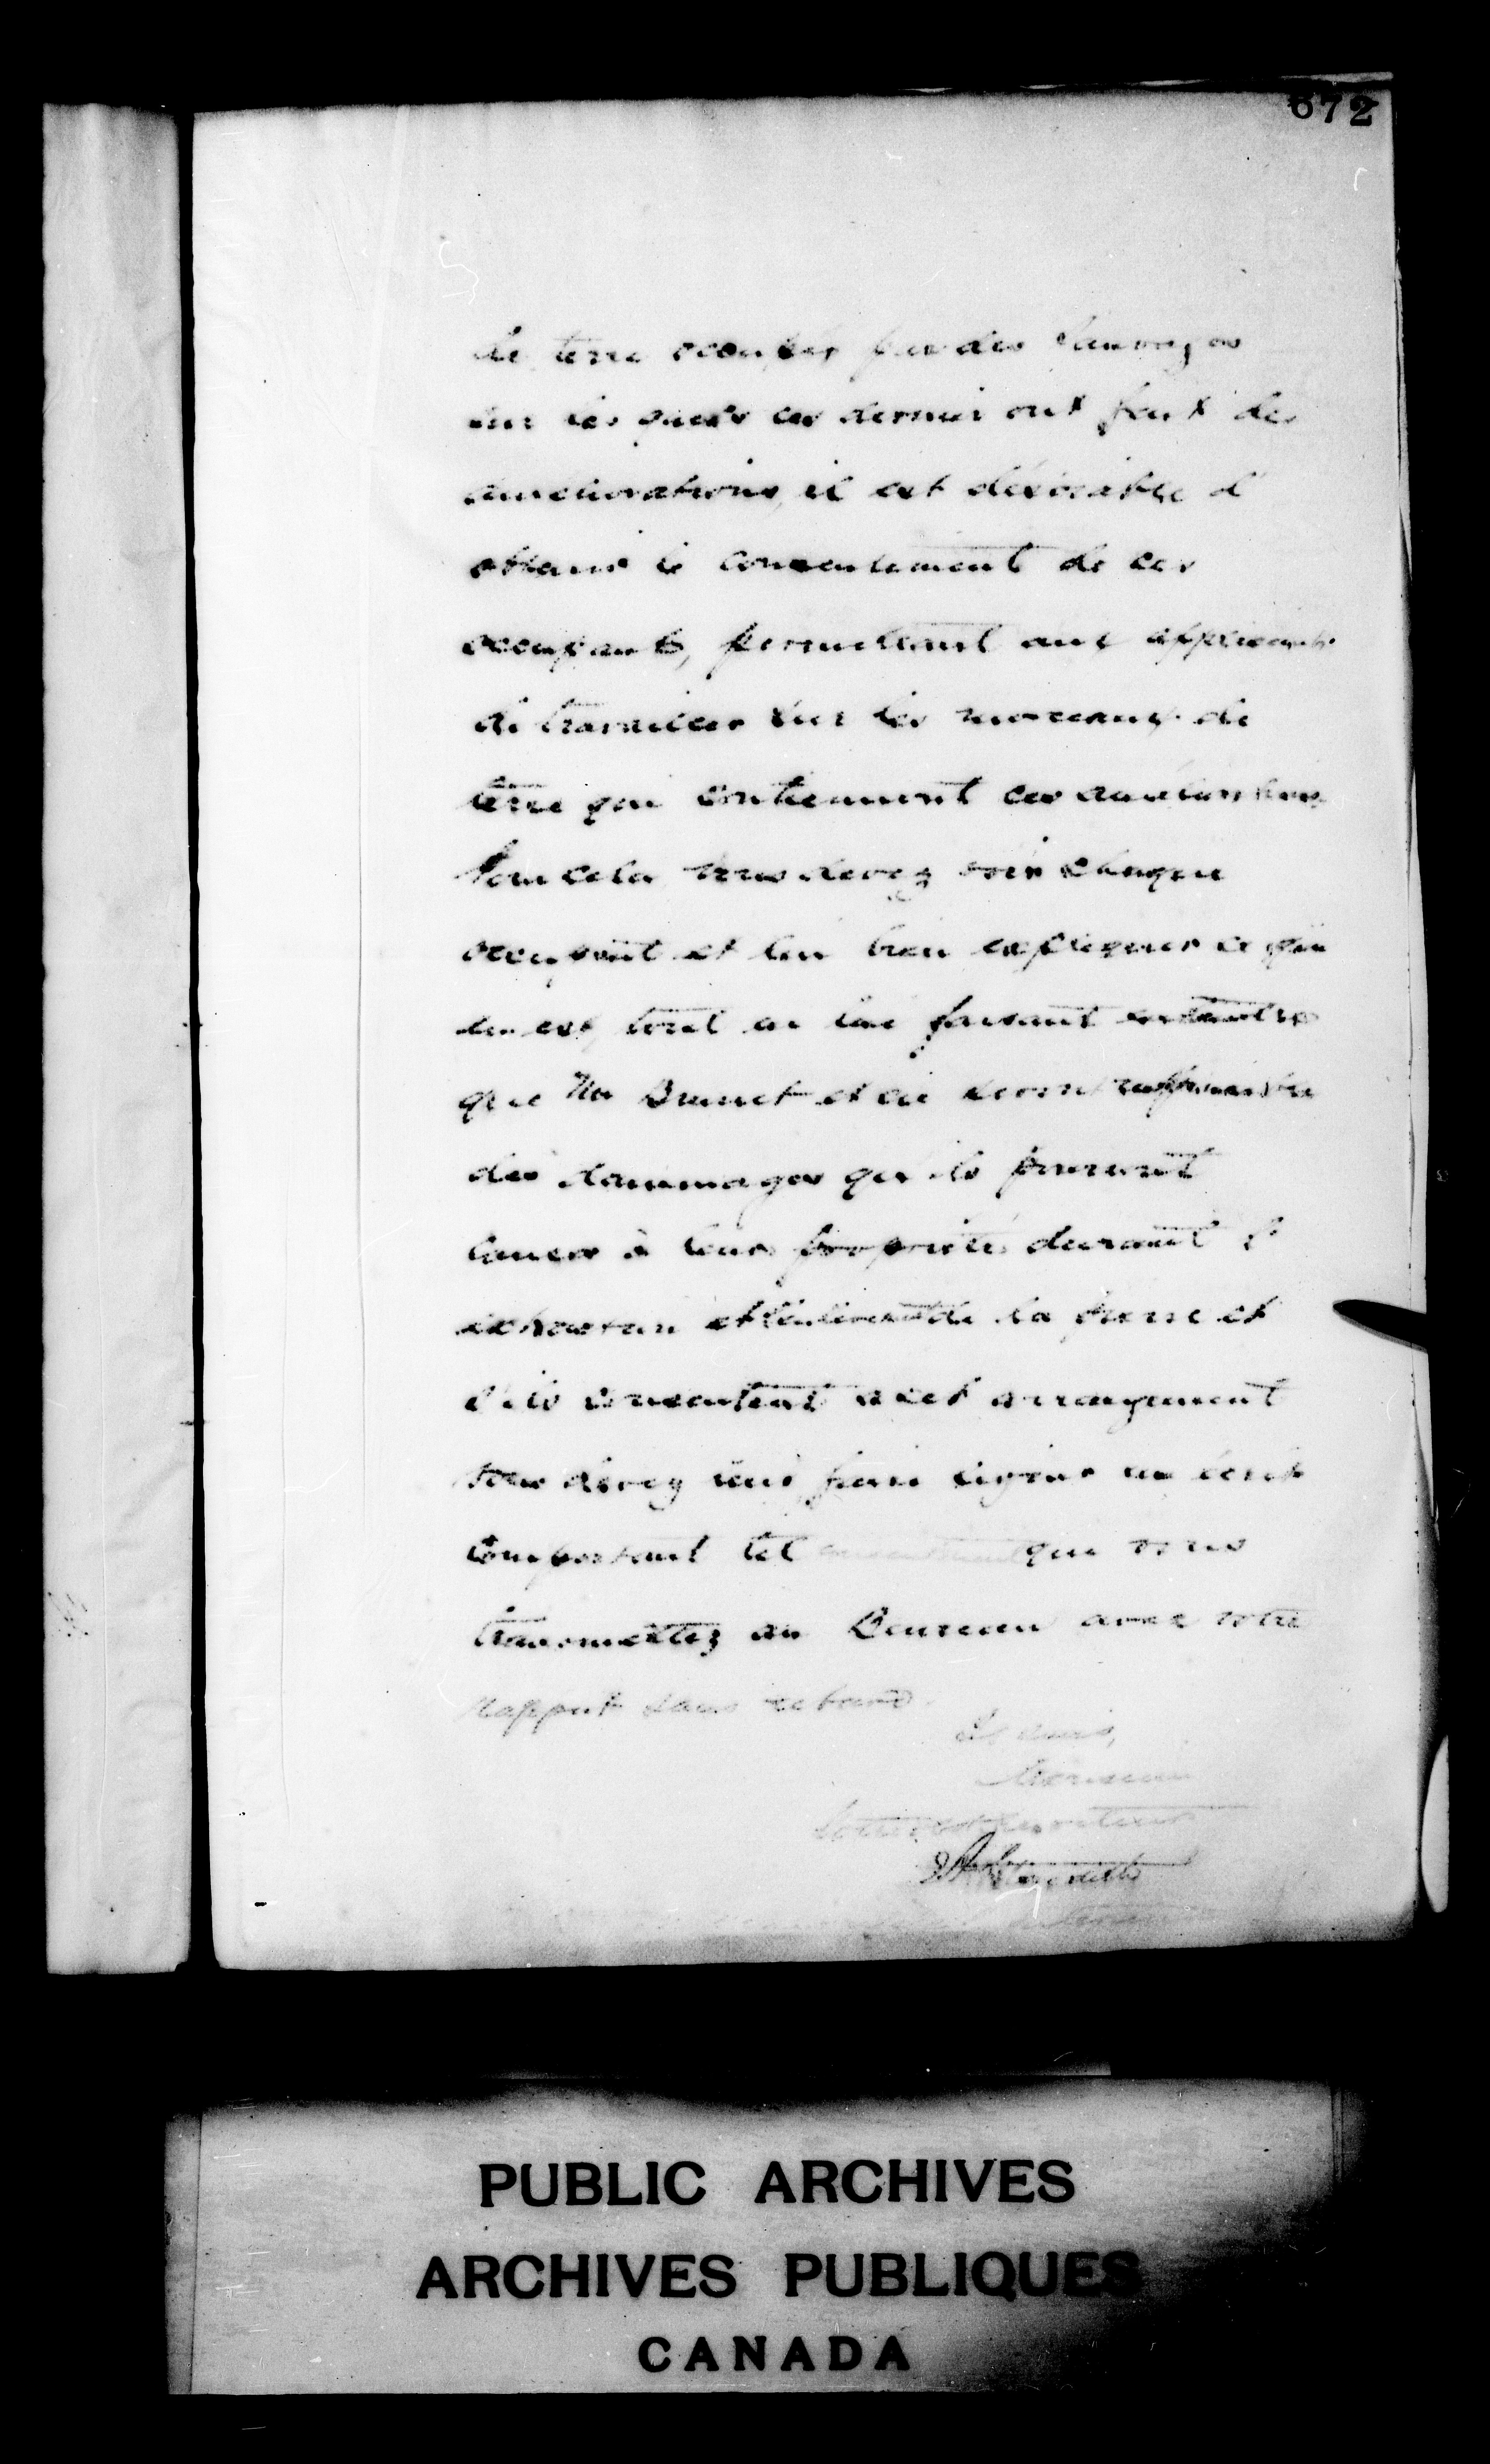 672
de terre occupés par des Sauvages
sur lesquels ces dernier ont fait des
améliorations, il est désirable d'
obtenir le consentement de ces
occupants, permettant aux applicants
de travailler sur les morceaux de
terre qui contiennent ces améliorations
Pour cela vous devez voir chaque
occupant et lui bien expliquer ce qui
en est, tout en lui faisant entendre
que Mr Brunet et cie seront responsables
des dommages qu'ils pourront
causer à leurs propriétés durant l'
extraction et l'enlèvement de la pierre et
s'ils consentent à cet arrangement
vous devez leur faire signer un écrit
comportant tel consentement que vous
transmettez au Bureau avec votre
rapport sans retard.
Je suis,
Monsieur
Votre obt. serviteur
PUBLIC ARCHIVES
ARCHIVES PUBLIQUES
CANADA